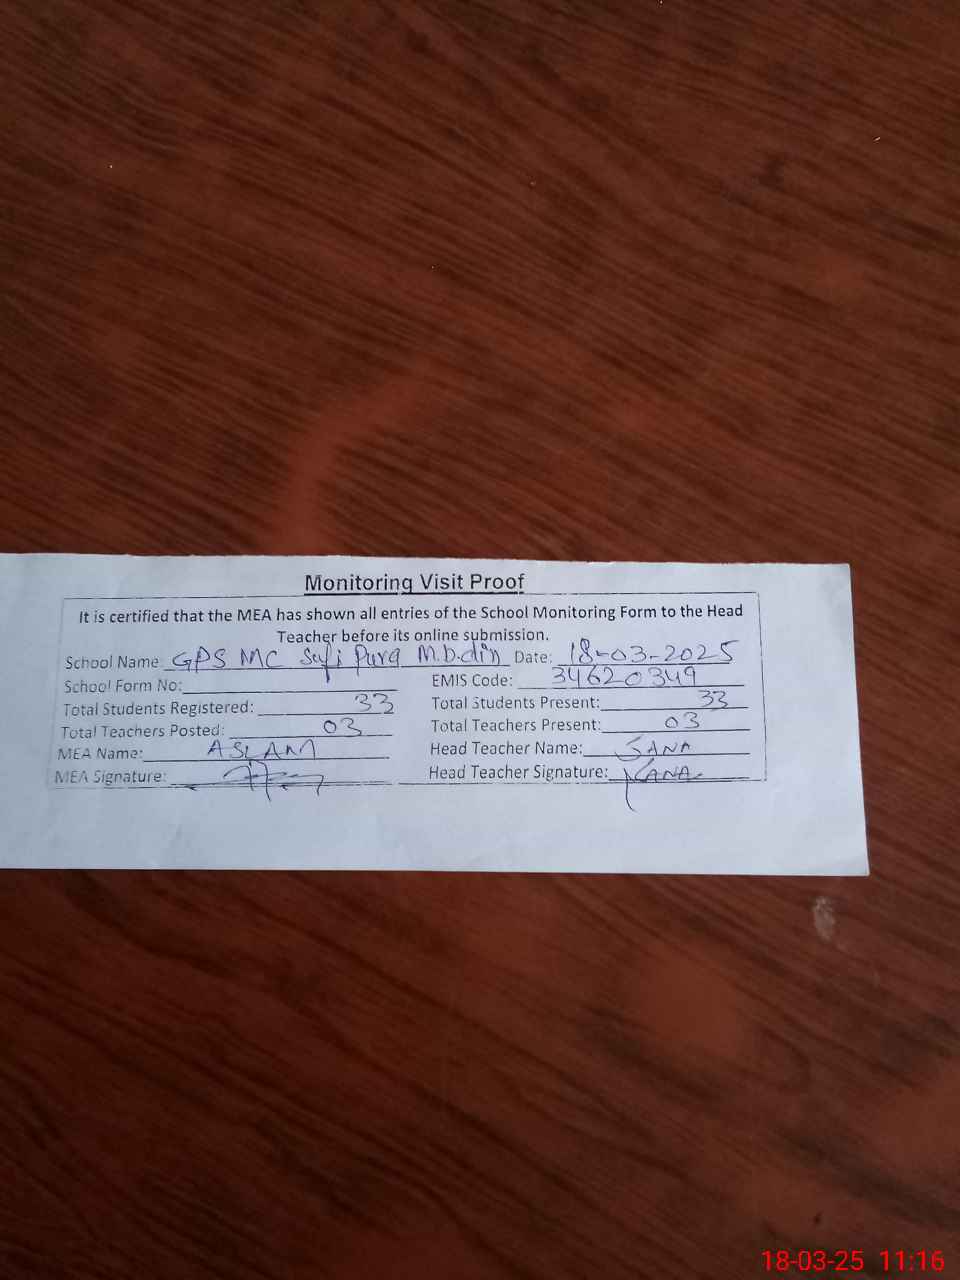 Monitoring Visit Proof
It is certified that the MEA has shown all entries of the School Monitoring Form to the Head
Teacher before its online submission.
School Name: GPS MC Sufi Pura M.B.din Date: 18-03-2025
School Form No: EMIS Code: 34620349
Total Students Registered: 33 Total Students Present: 33
Total Teachers Posted: 03 Total Teachers Present: 03
MEA Name: ASLAM Head Teacher Name: SANA
MEA Signature: Head Teacher Signature: SANA
18-03-25 11:16